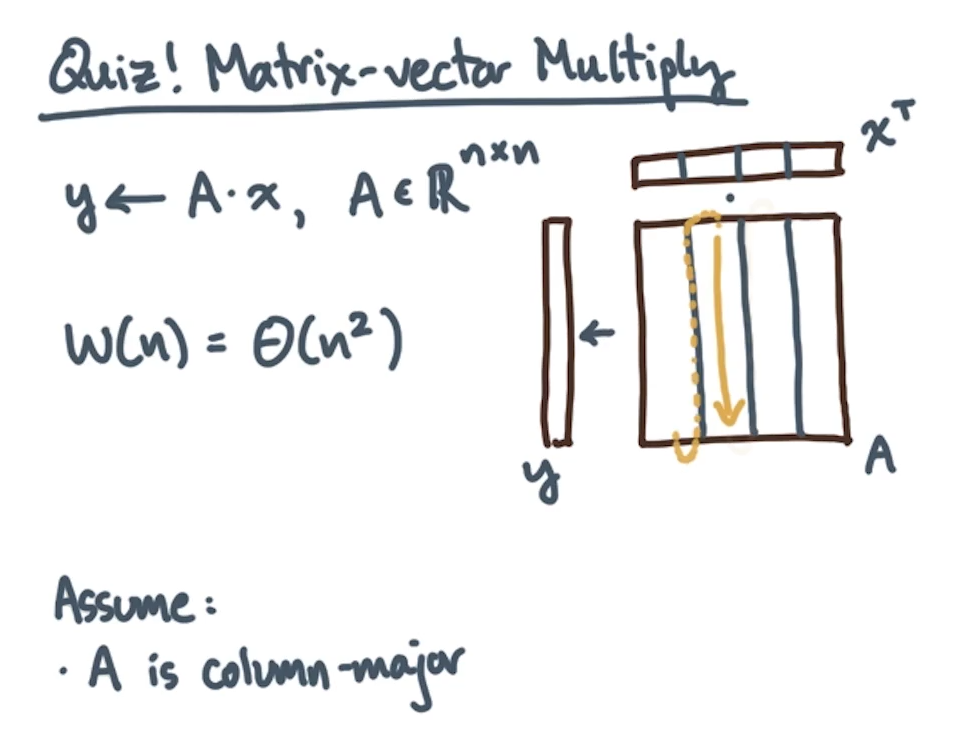 Quiz! Matrix-vector Multiply
xᵀ
y ← A · x, A ∈ ℝⁿˣⁿ
W(n) = Θ(n²)
←
y
A
Assume:
· A is column-major